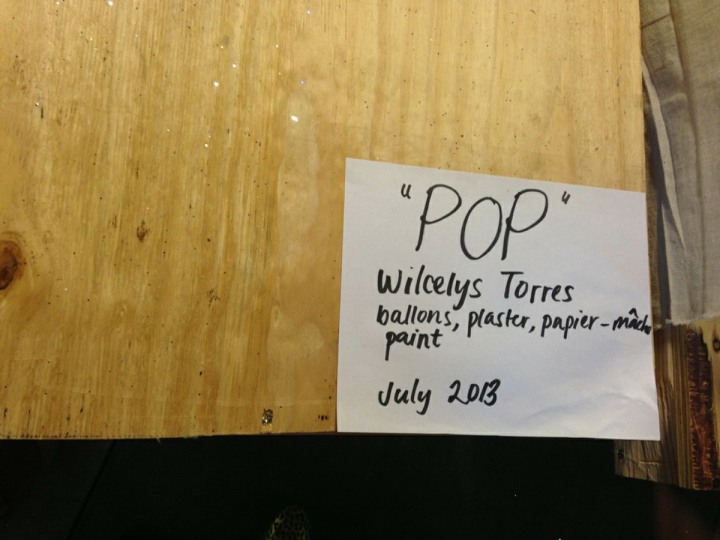 "POP"
Wilcelys Torres
ballons, plaster, papier-mâché
paint
July 2013